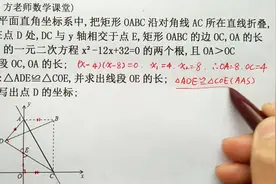 方老师数学课堂)
平面直角坐标系中,把矩形 OABC 沿对角线 AC 所在直线折叠,
点 D 处,DC 与 y 轴相交于点 E,矩形 OABC 的边 OC,OA 的长
的一元二次方程 x²-12x+32=0 的两个根,且 OA>OC
段 OC,OA 的长; (x-4)(x-8)=0. x₁=4. x₂=8. ∴OA=8.OC=4
:△ADE≌△COE,并求出线段 OE 的长; △ADE≌△COE(AAS)
写出点 D 的坐标;
y
A
B
D
E
C
O
x